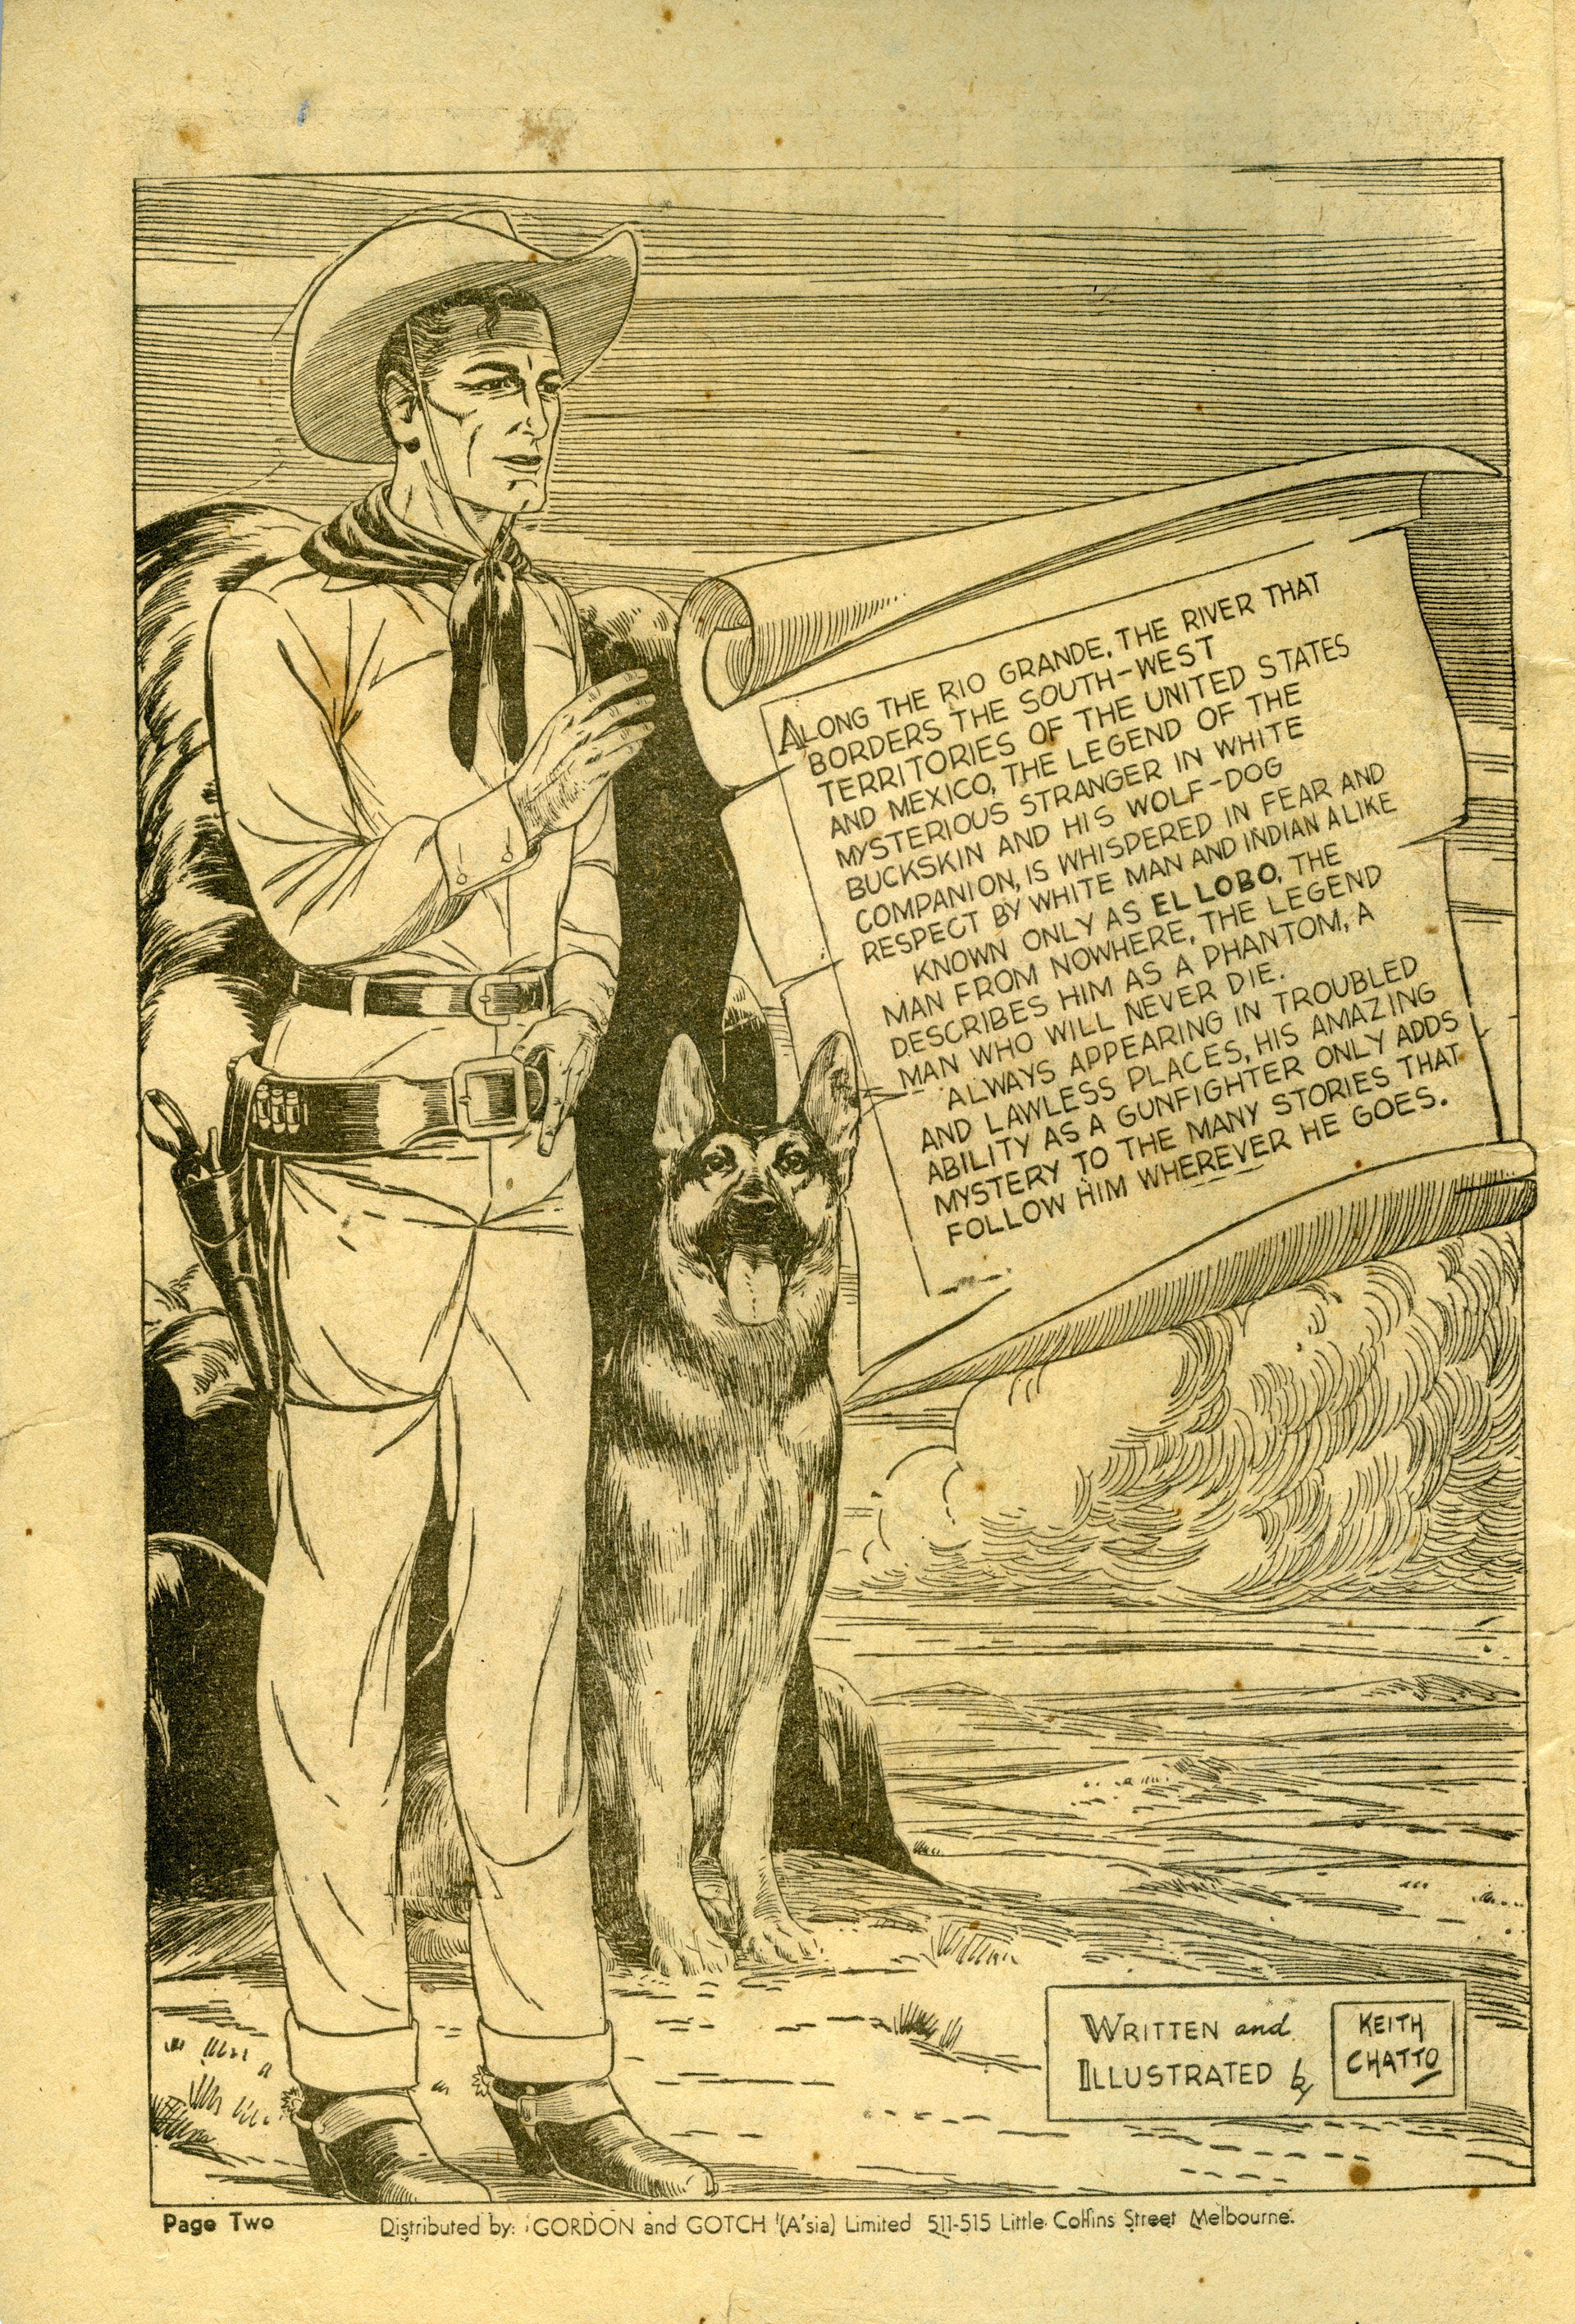 ALONG THE RIO GRANDE, THE RIVER THAT
BORDERS THE SOUTH-WEST
TERRITORIES OF THE UNITED STATES
AND MEXICO, THE LEGEND OF THE
MYSTERIOUS STRANGER IN WHITE
BUCKSKIN AND HIS WOLF-DOG
COMPANION, IS WHISPERED IN FEAR AND
RESPECT BY WHITE MAN AND INDIAN ALIKE
KNOWN ONLY AS EL LOBO, THE
MAN FROM NOWHERE, THE LEGEND
DESCRIBES HIM AS A PHANTOM, A
MAN WHO WILL NEVER DIE.
ALWAYS APPEARING IN TROUBLED
AND LAWLESS PLACES, HIS AMAZING
ABILITY AS A GUNFIGHTER ONLY ADDS
MYSTERY TO THE MANY STORIES THAT
FOLLOW HIM WHEREVER HE GOES.
WRITTEN and
ILLUSTRATED by
KEITH
CHATTO
Page Two
Distributed by: GORDON and GOTCH (A'sia) Limited 511-515 Little Collins Street Melbourne.